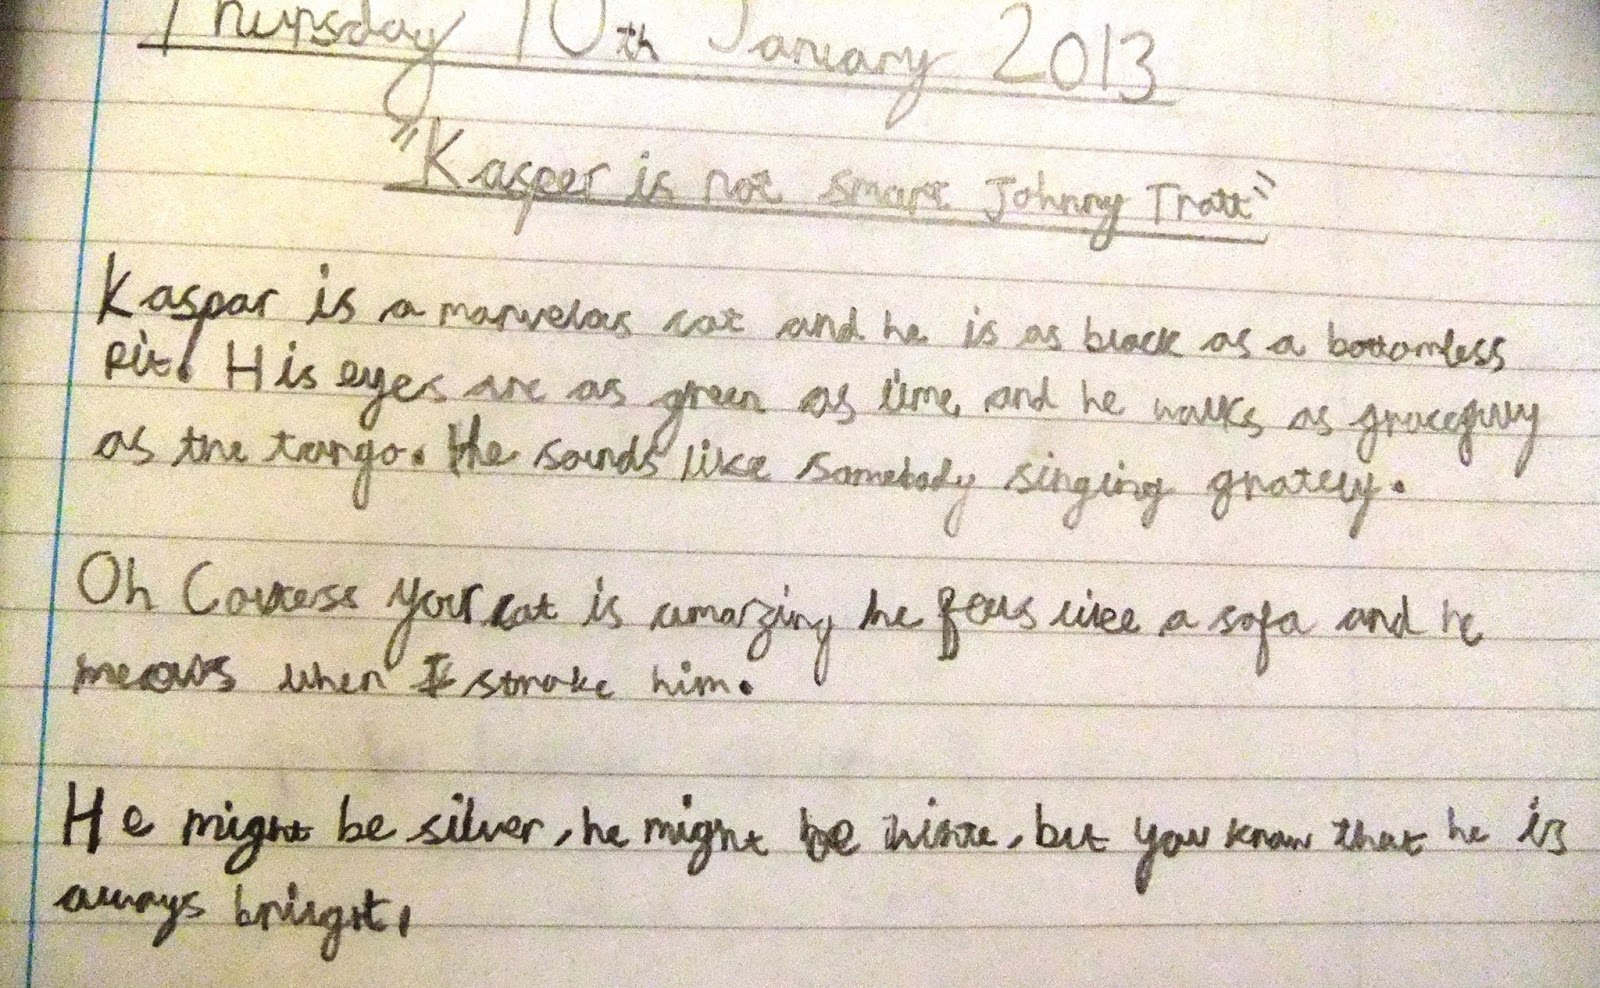 Thursday 10th January 2013
"Kasper is not smart Johnny Trott"
Kaspar is a marvelas cat and he is as black as a bottomless
pit. His eyes are as green as lime and he walks as gracefully
as the tango. He sounds like somebody singing grately.
Oh Coutess your cat is amazing he feels like a sofa and he
meows when I stroke him.
He might be silver, he might be white, but you know that he is
always bright.